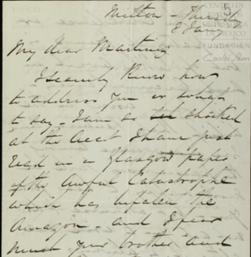 Thursday
8 Jany
My dear Martineau
I scarcely know how
to address you or what
to say. I am so shocked
at the acct I have just
read in a Glasgow paper
of the awful Catastrophe
which has befallen the
Amazon - and I fear
much your brother and